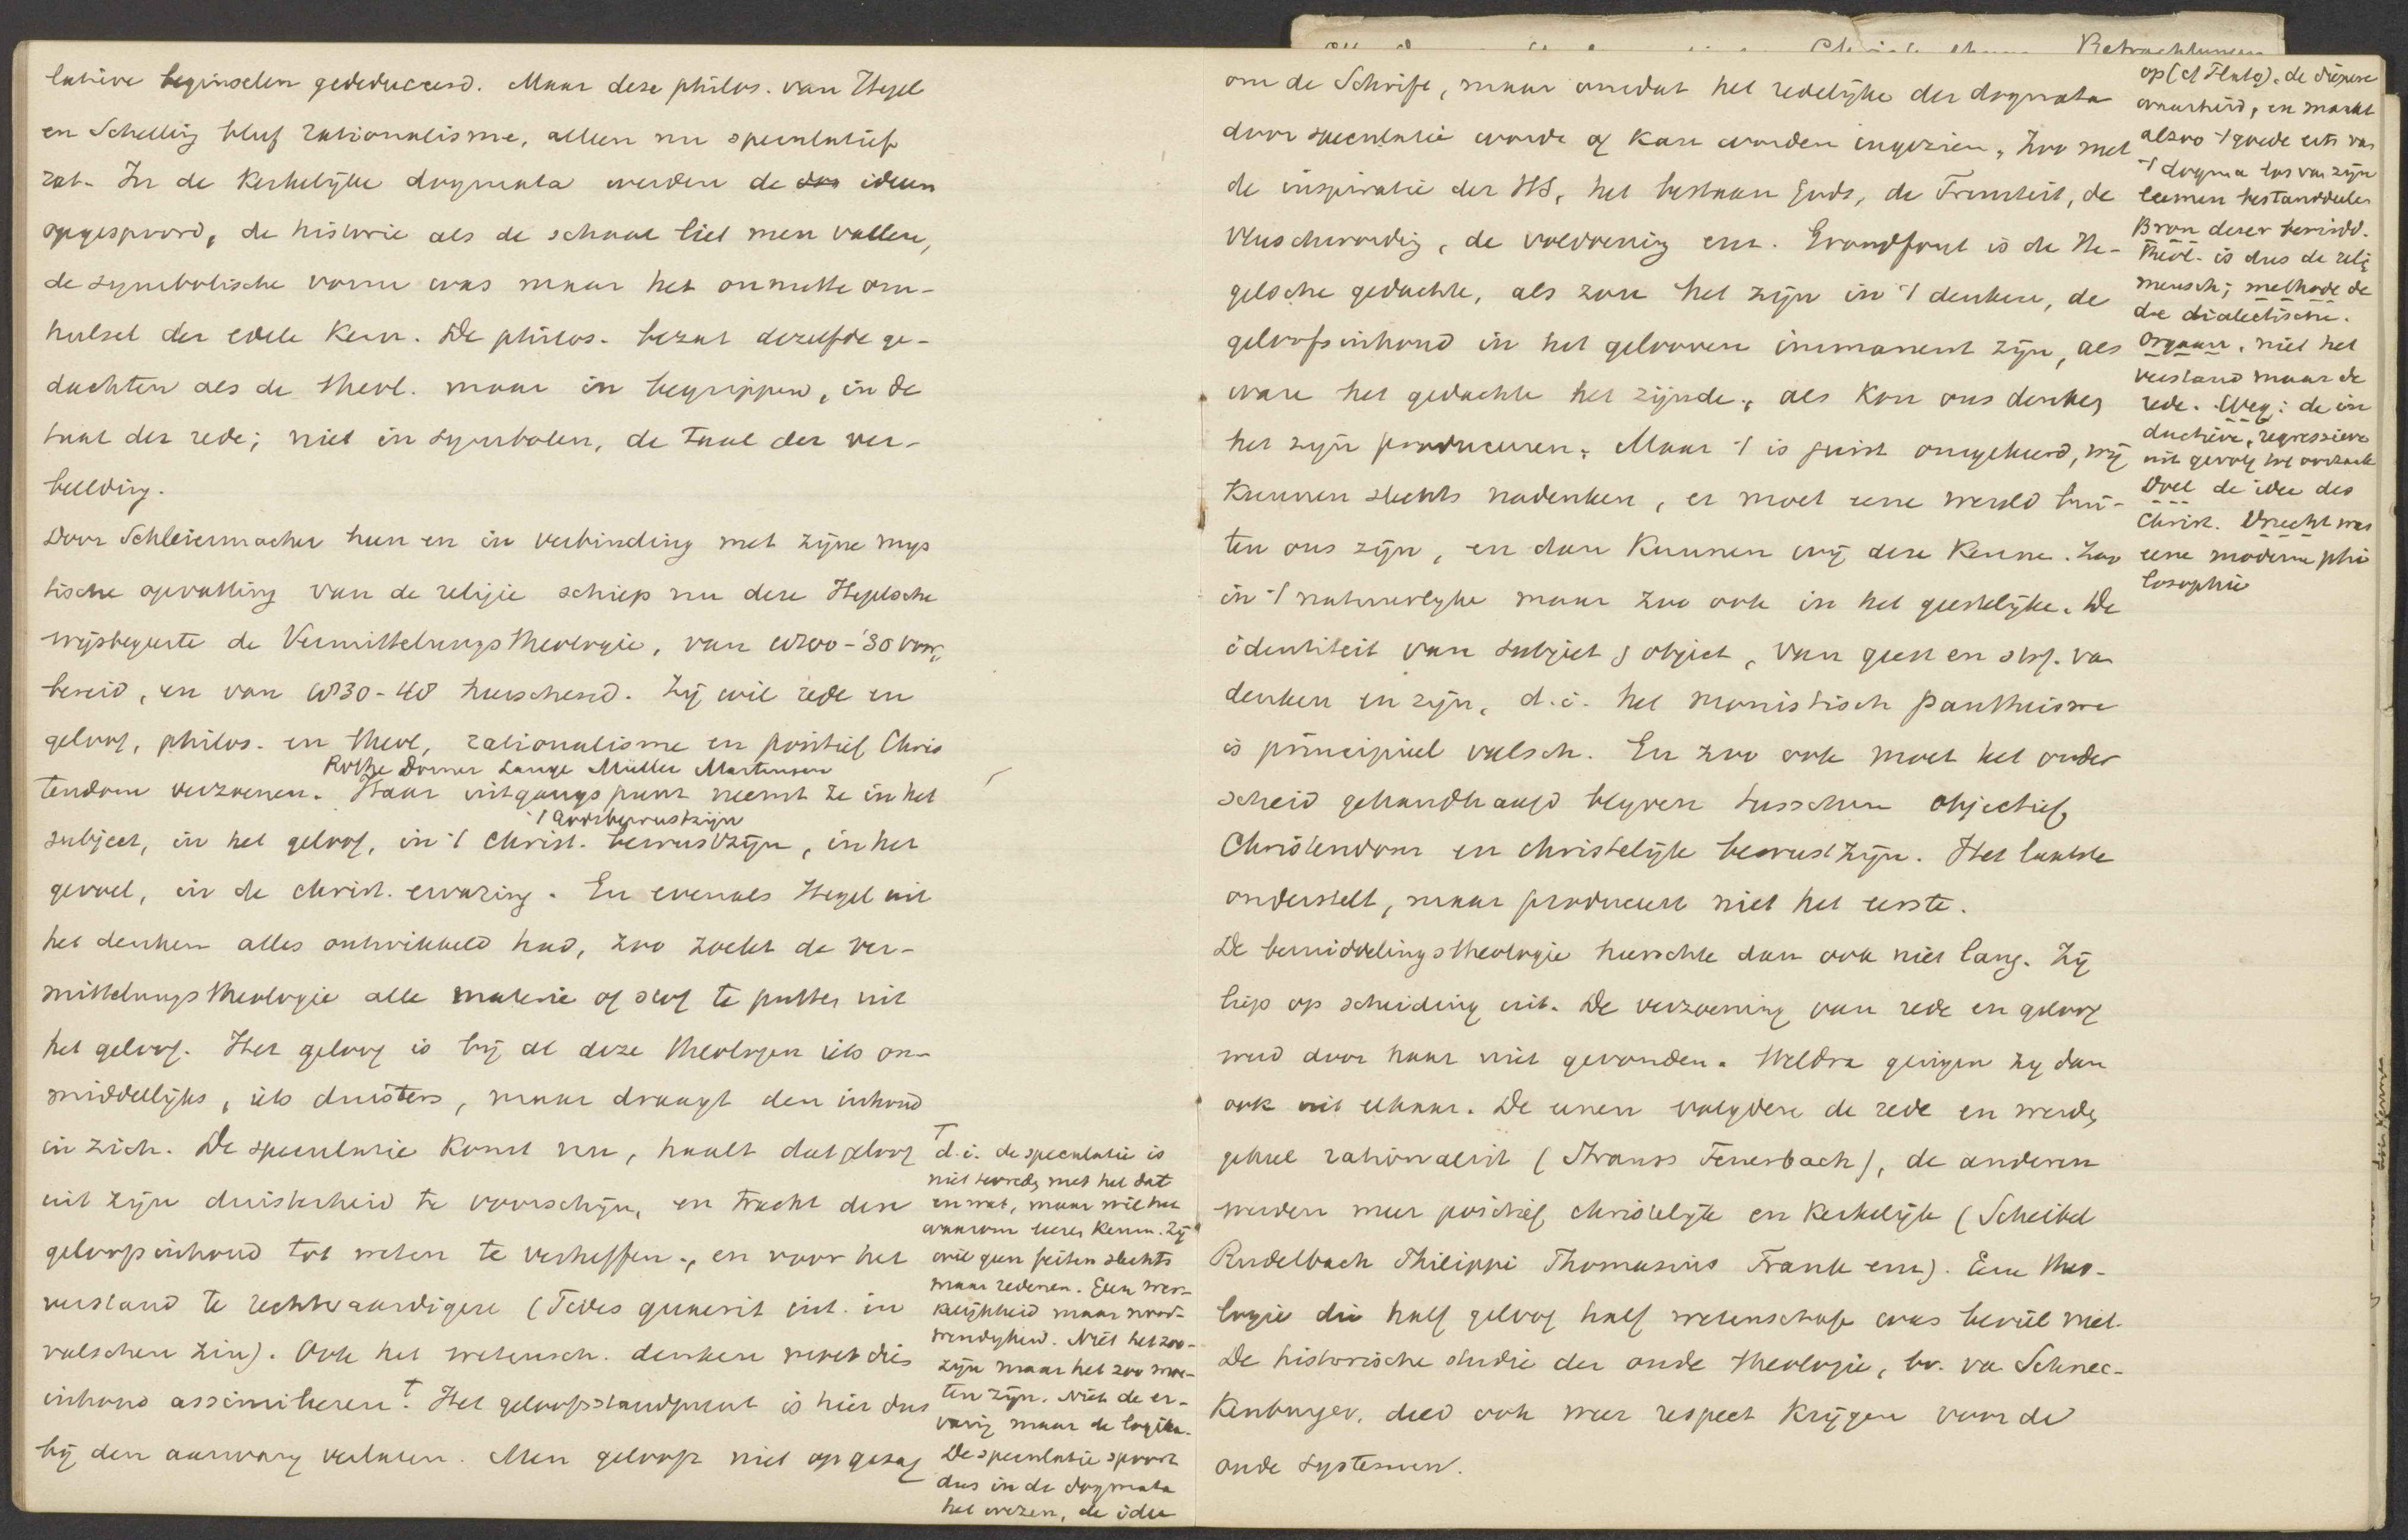 lative beginselen gededuceerd. Maar deze philos. van Hegel
en Schelling bleef rationalisme, alleen nu speculatief
rat. In de Kerkelijke dogmata werden de ideën
opgespoord, de historie als de schaal liet men vallen,
de symbolische vorm was maar het onnutte om-
hulsel der edele Kern. De philos. bezat dezelfde ge-
dachten als de theol. maar in begrippen, in de
taal der rede; niet in symbolen, de taal der ver-
beelding.
Door Schleiermacher heen en in verbinding met zijne mys
tische opvatting van de religie schiep nu deze Hegelsche
wijsbegeerte de Vermittelungstheologie, van 1800-'30 voor,
bereid, en van 1830-48 heerschend. Zij wil rede en
geloof, philos. en theol, rationalisme en positief Chris
Rothe Dorner Lange Müller Martensen
tendom verzoenen. Haar uitgangspunt neemt ze in het
't Godsbewustzijn
subject, in het geloof, in 't Christ. bewustzijn, in het
gevoel, in de christ. ervaring. En evenals Hegel uit
het denken alles ontwikkeld had, zoo zoekt de ver-
mittelungstheologie alle materie of stof te putten uit
het geloof. Het geloof is bij al deze theologen iets on-
middellijks, iets duisters, maar draagt den inhoud
in zich. De speculatie komt nu, haalt dat geloof
uit zijn duisterheid te voorschijn, en tracht dien
geloofsinhoud tot weten te verheffen, en voor het
verstand te rechtvaardigen (Fides quaerit int. in
valschen zin). Ook het wetensch. denken moet dien
inhoud assimileren.† Het geloofsstandpunt is hier dus
bij den aanvang verlaten. Men gelooft niet op gezag
† d.i. de speculatie is
niet tevreden met het dat
en wat, maar wil het
waarom leeren kennen. Zij
wil geen feiten slechts
maar redenen. Geen wer-
kelijkheid maar nood-
wendigheid. Niet het zoo-
zijn maar het zoo moe-
ten zijn. Niet de er-
varing maar de logika.
De speculatie spoort
dus in de dogmata
het wezen, de idee
om de Schrift, maar omdat het redelijke der dogmata
door speculatie worde of kan worden ingezien. Zoo met
de inspiratie der HS, het bestaan Gods, de Triniteit, de
vleeschwording, de voldoening enz. Grondfout is de He-
gelsche gedachte, als zou het zijn in 't denken, de
geloofsinhoud in het gelooven immanent zijn, als
ware het gedachte het zijnde, als Kon ons denken
het zijn produceeren. Maar 't is juist omgekeerd, wij
Kunnen slechts nadenken, er moet eene wereld bui-
ten ons zijn, en dan Kunnen wij deze Kenne. Zoo
in 't natuurlijke maar zoo ook in het geestelijke. De
identiteit van subject & object, van geest en stof. van
denken en zijn, d.i. het monistisch pantheisme
is principieel valsch. En zoo ook moet het onder
scheid gehandhaafd blijven tusschen objectief
Christendom en christelijk bewustzijn. Het laatste
onderstelt, maar produceert niet het eerste.
De bemiddelingstheologie heerschte dan ook niet lang. Zij
liep op scheiding uit. De verzoening van rede en geloof
werd door haar niet gevonden. Weldra gingen zij dan
ook uit elkaar. De eenen volgden de rede en werden
geheel rationalist (Strauss Feuerbach), de anderen
werden meer positief christelijk en Kerkelijk (Scheibel
Rudelbach Philippi Thomasius Frank enz). Eene theo-
logie die half geloof half wetenschap was beviel niet.
De historische studie der oude theologie, bv. van Schnec-
Kenburger, deed ook weer respect Krijgen voor de
oude systemen.
op (cf Plato). de diepere
waarheid, en maakt
alzoo 't goede erts van
't dogma los van zijn
leemen bestanddeelen
Bron dezer bemidd.
theol. is dus de relig
mensch; methode de
de dialectische.
Orgaan. niet het
verstand maar de
rede. Weg: de in
ductieve, regressieve
uit gevolg tot oorzaak
Doel de idee des
Christ. Vrucht was
eene moderne phi
losophie